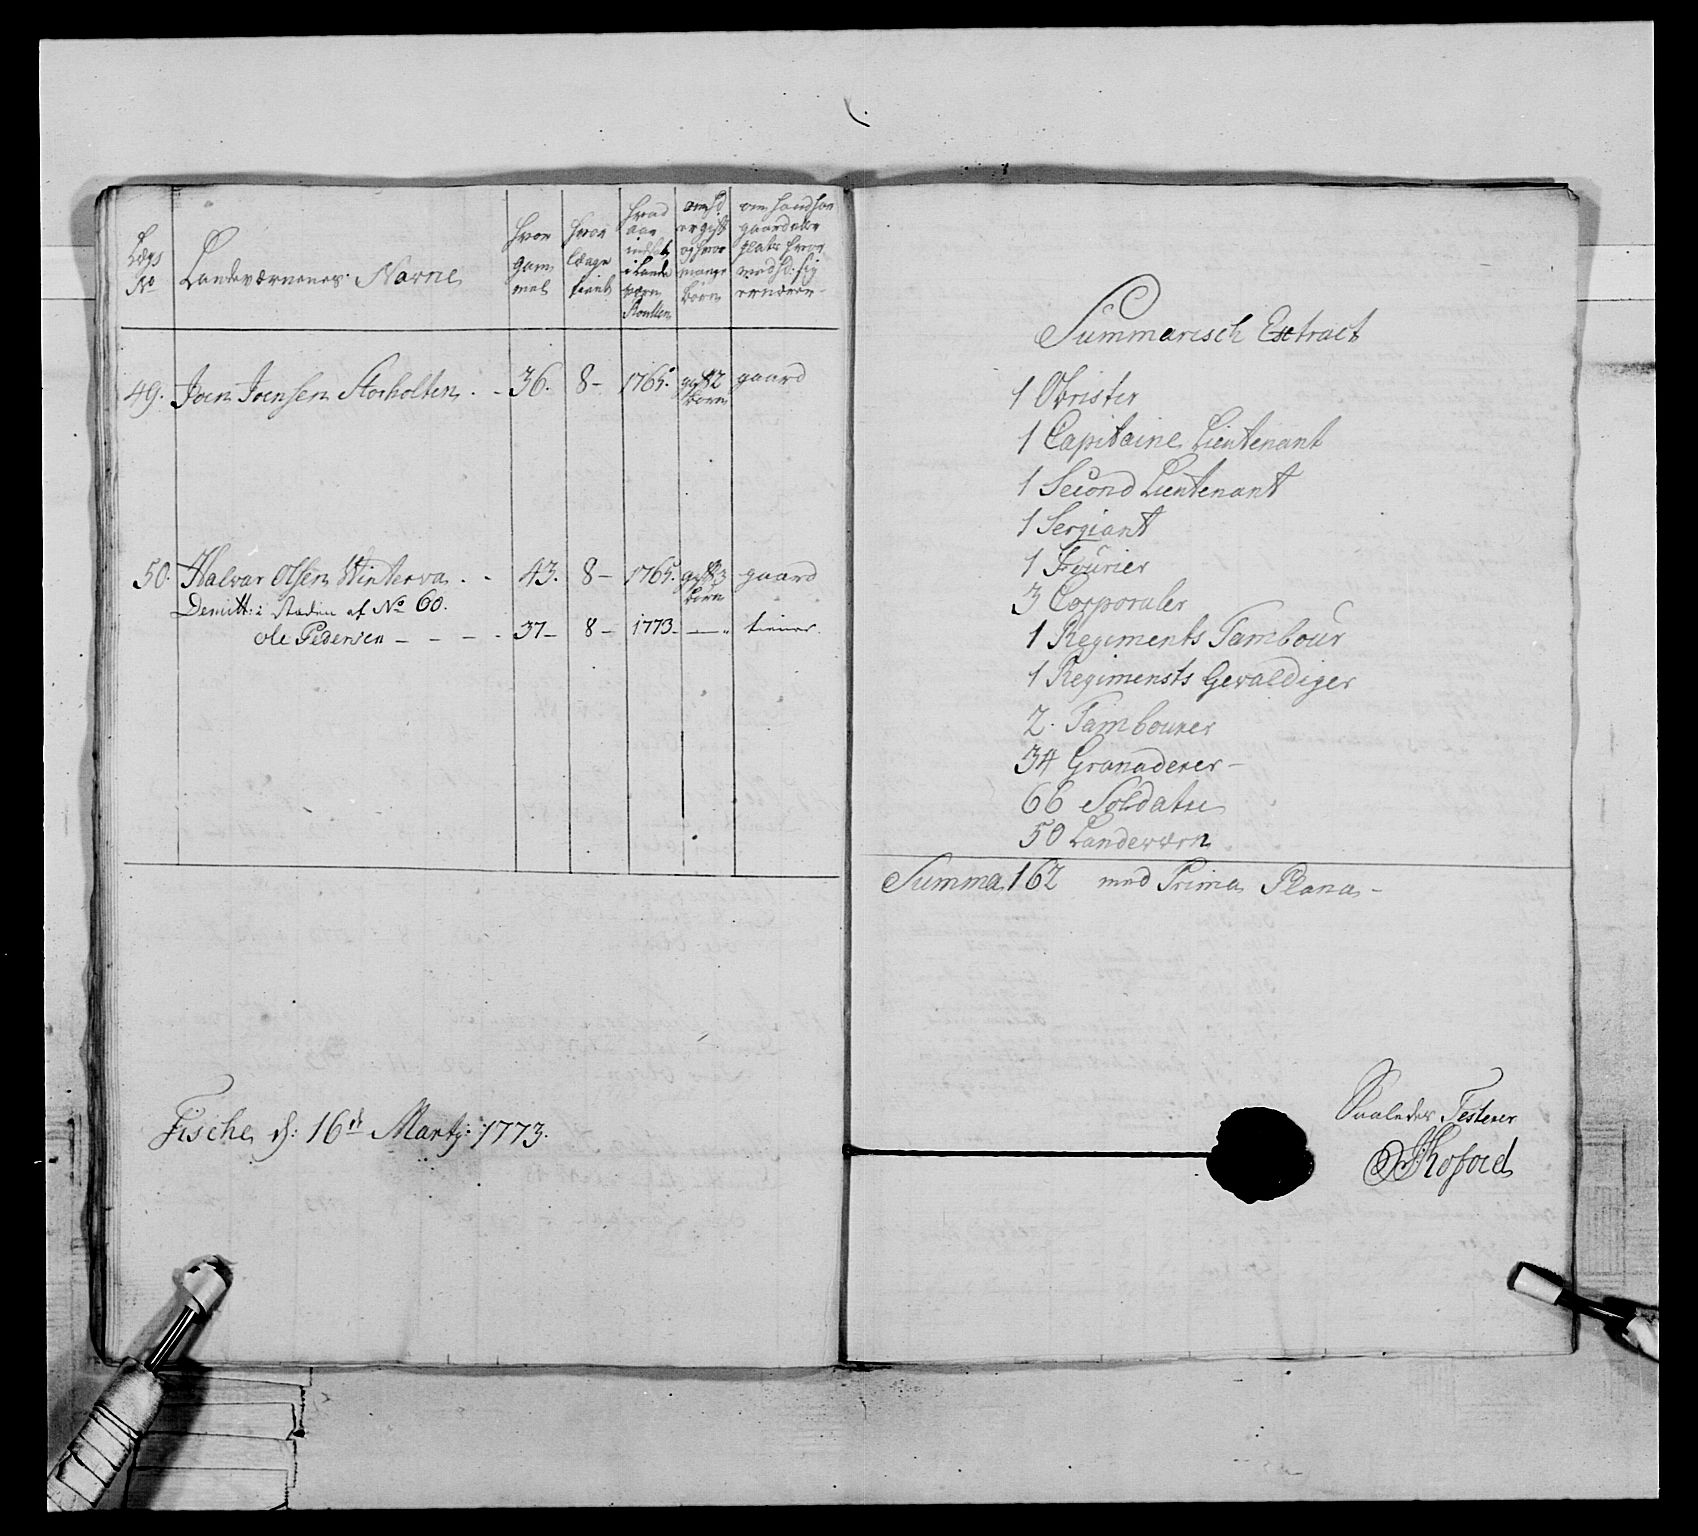 Lægs No
Landeværnenes Navne
hvor gammel
hvor længe tient
hvad aar indsat i Landeværn
om hd er gift og hvor mange børn
om hand har gaard eller plats hvor med hd: sig ernærer
49. Joen Joensen Storholten 36. 8- 1765. gift 2 børn gaard
50. Halvar Olsen Winterva 43. 8- 1765. gift 3 børn gaard
Demitt: i Stæden af No 60.
Ole Pedersen 37- 8- 1773- - tiener.
Fische d: 16de Marty: 1773.
Summarisch Extract
1 Obrister
1 Capitaine Lieutenant
1 Second Lieutenant
1 Sergiant
1 Fourier
3 Corporaler
1 Regiments Tambour
1 Regimensts Gevaldiger
2. Tambourer
34 Granaderer-
66 Soldater
50 Landeværn
Summa 162 med Prima Plana-
Saaledes Testerer
Koford